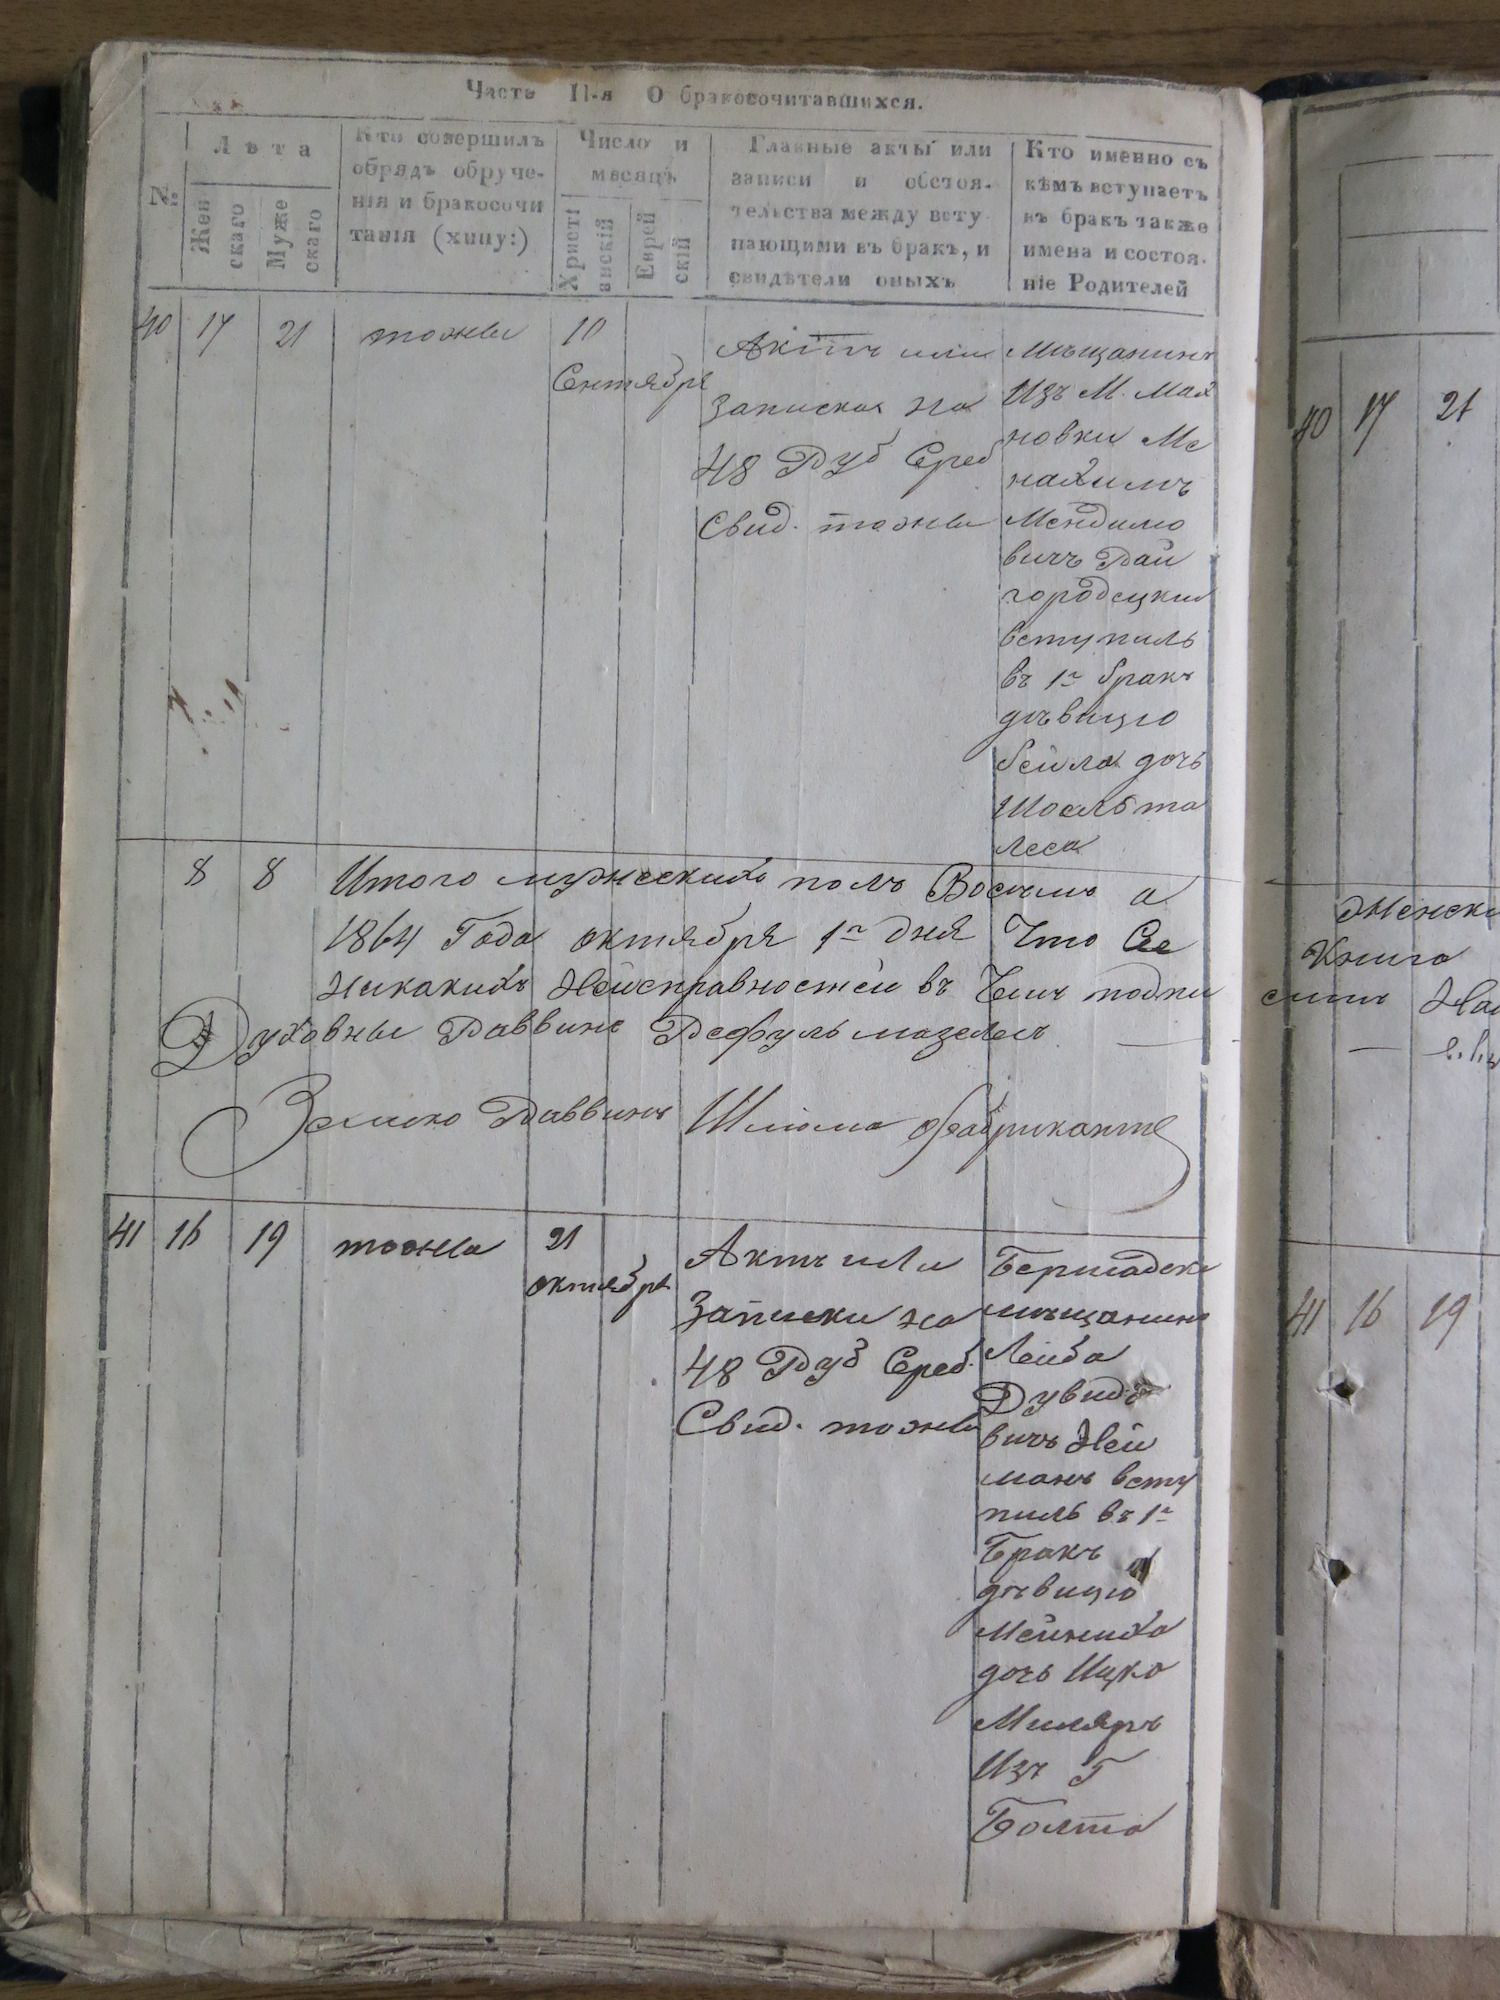 Часть II-я О бракосочитавшихся.
№
Лѣта
Женскаго
Мужескаго
Кто совершилъ
обрядъ обруче-
нія и бракосочи
танія (хупу:)
Число и
месяцъ
Христіанскій
Еврейскій
Главные акты или
записи и обстоя-
тельства между всту
пающими въ бракъ, и
свидѣтели оныхъ
Кто именно съ
кѣмъ вступаетъ
въ бракъ также
имена и состоя-
ніе Родителей
40 17 21 тожы 10
Сентября
Актъ или
Записка на
48 Руб Сереб
Свид. тожы
Мѣщанинъ
Изъ М. Мах
новки Ме
нахимъ
Мендило
вичъ Рай
городецкий
вступилъ
въ 1й бракъ
дѣвицю
бейла дочь
Шоелъ та
леса
8 8 Итого мужескихъ полъ Восемь а
1864 Года октября 1го дня Что Сее
Никакихъ Неисправностей въ Чемъ подпи
Духовны Раввинъ Рефуль мазелесъ
Раввинъ Шлиома Фабриканте
41 16 19 тожы 21
октября
Актъ или
Записки на
48 Руб Сереб.
Свид. тожы
Бершадски
мѣщанинъ
Лейба
Дувидо
вичъ Ней
манъ всту
пилъ въ 1й
Бракъ
дѣвицю
Мейниха
дочь Ицко
Миляръ
Изъ Г
Болта
40 17 21
Женски
Книга
41 16 19